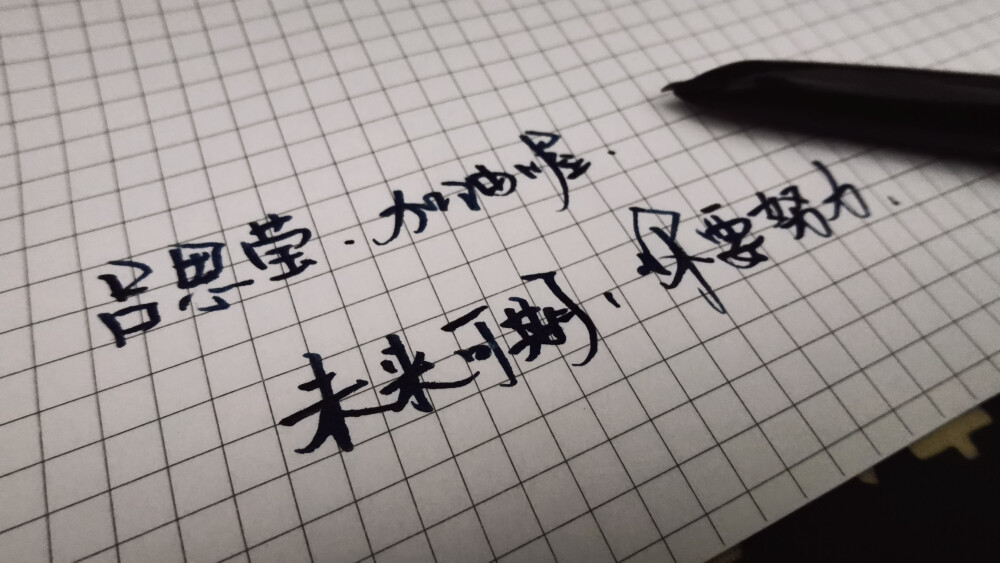 吕恩莹.加油喔.
未来可期、只要努力.